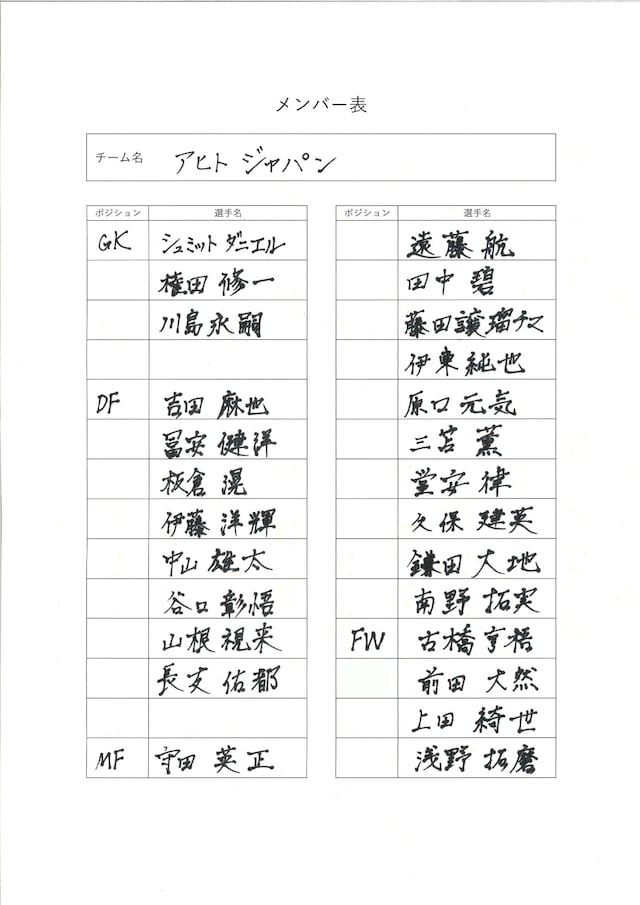 メンバー表
チーム名 アヒト ジャパン
ポジション 選手名
GK シュミット ダニエル
権田 修一
川島 永嗣
DF 吉田 麻也
冨安 健洋
板倉 滉
伊藤 洋輝
中山 雄太
谷口 彰悟
山根 視来
長友 佑都
MF 守田 英正
ポジション 選手名
遠藤 航
田中 碧
藤田譲瑠チマ
伊東 純也
原口 元気
三笘 薫
堂安 律
久保 建英
鎌田 大地
南野 拓実
FW 古橋 亨梧
前田 大然
上田 綺世
浅野 拓磨